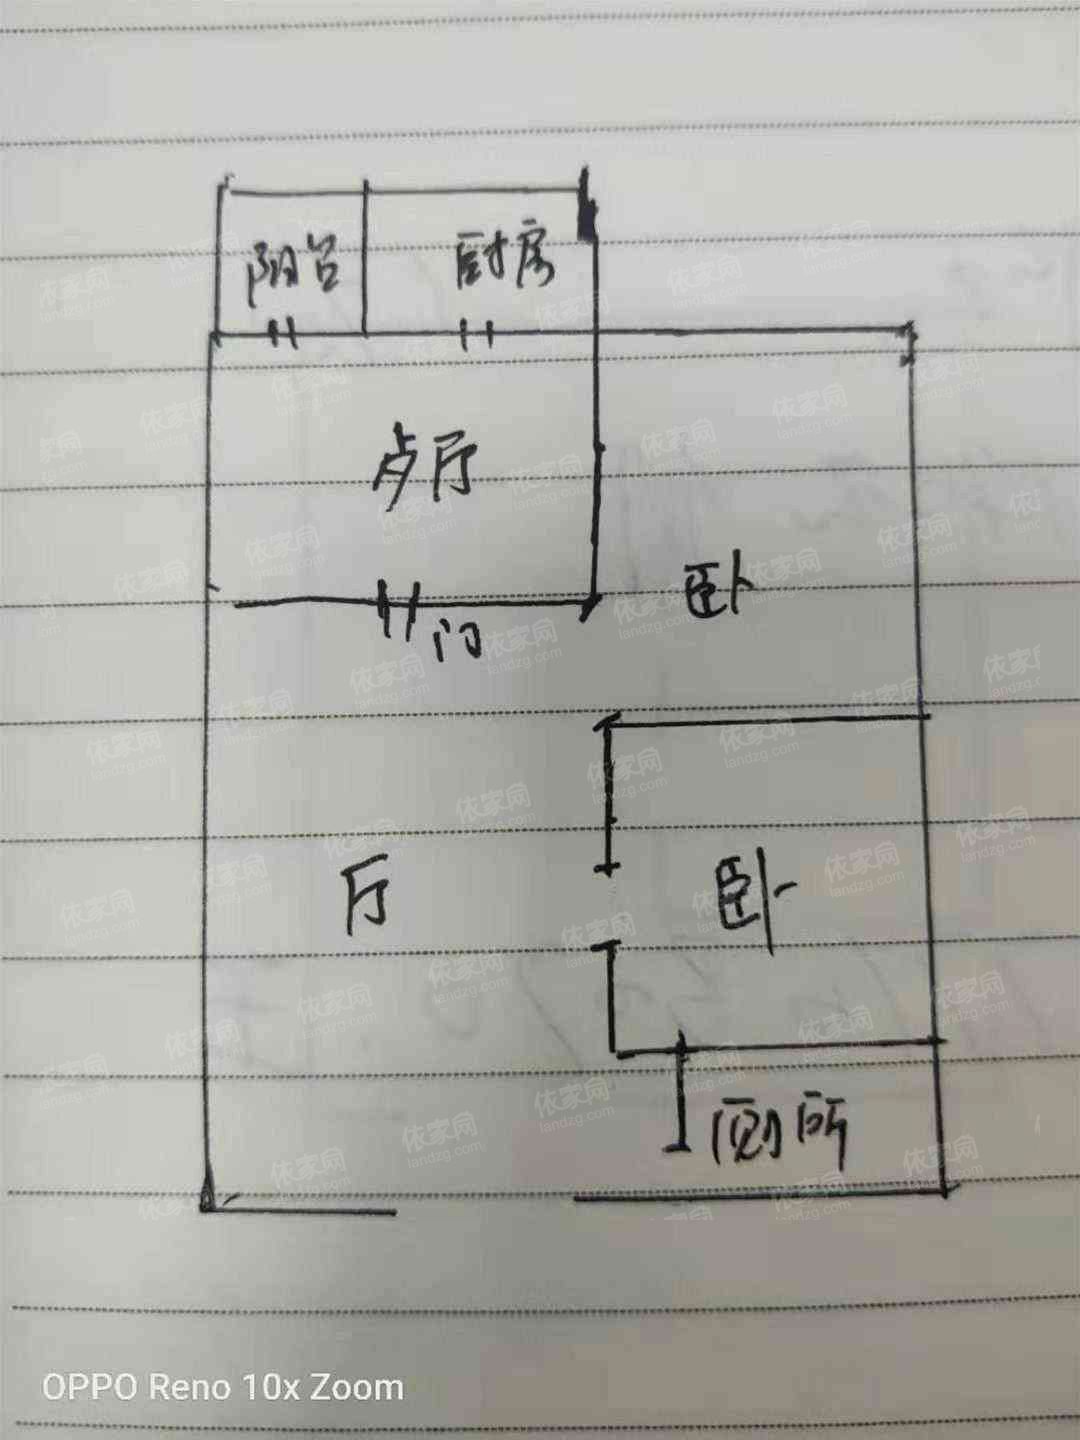 阳台
厨房
卢厅
门
卧
厅
卧
厕所
依家网
landzg.com
OPPO Reno 10x Zoom